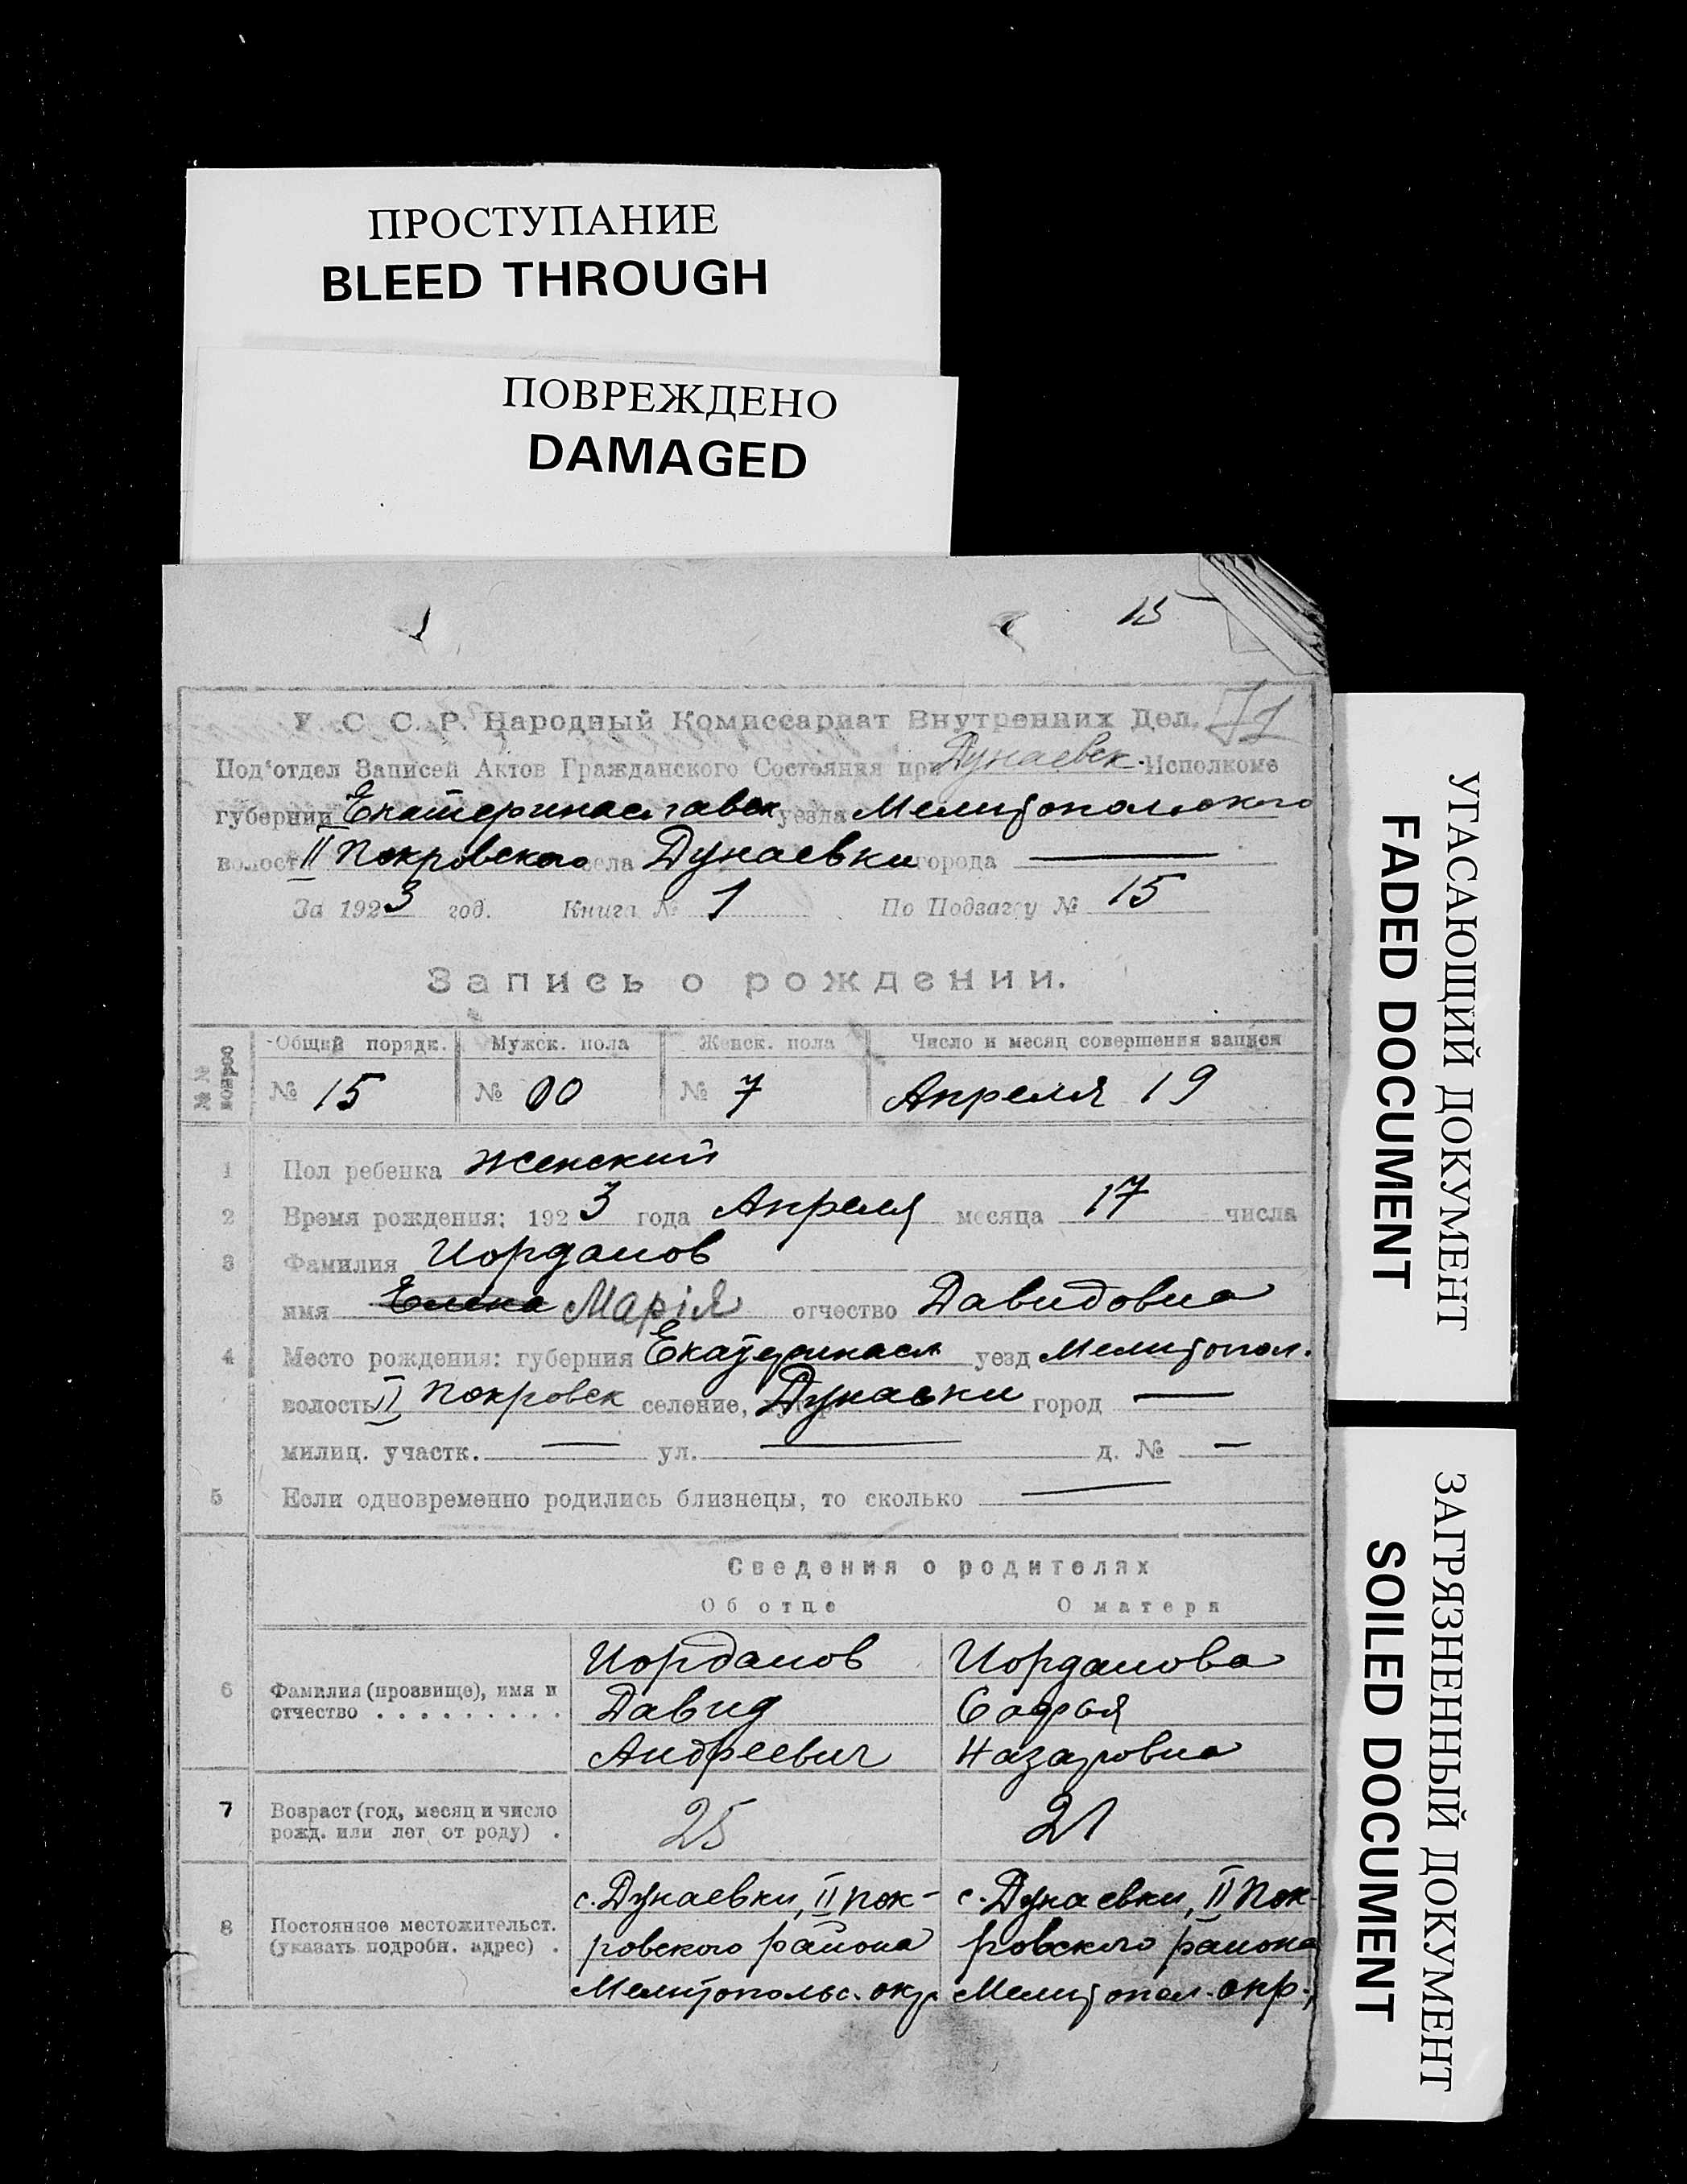 ПРОСТУПАНИЕ
BLEED THROUGH
ПОВРЕЖДЕНО
DAMAGED
15
У. С. С. Р. Народный Комиссариат Внутренних Дел.
Под'отдел Записей Актов Гражданского Состояния при Дунаевск. Исполкоме
губернии Екатеринославск уезда Мелитопольского
волост II Покровского села Дунаевки города —
За 1923 год. Книга № 1 По Подзагсу № 15
Запись о рождении.
№№ вопрос
Общий порядк. Мужск. пола Женск. пола Число и месяц совершения записи
№ 15 № 00 № 7 Апреля 19
1 Пол ребенка женский
2 Время рождения: 1923 года Апреля месяца 17 числа
3 Фамилия Иорданов
имя Елена Марія отчество Давидовна
4 Место рождения: губерния Екатеринасл уезд Мелитопол.
волость II Покровск селение, хутор Дунаевки город —
милиц. участк. — ул. — д. № —
5 Если одновременно родились близнецы, то сколько —
Сведения о родителях
Об отце О матери
6 Фамилия (прозвище), имя и отчество . . . . . . . . .
Иорданов Иорданова
Давид Софья
Андреевич Назаровна
7 Возраст (год, месяц и число рожд. или лет от роду) .
25 21
8 Постоянное местожительст. (указать подробн. адрес) .
с. Дунаевки, II Пок- с. Дунаевки, II Пок-
ровского района ровского района
Мелитопольс. окр. Мелитопол. окр.,
УГАСАЮЩИЙ ДОКУМЕНТ
FADED DOCUMENT
ЗАГРЯЗНЕННЫЙ ДОКУМЕНТ
SOILED DOCUMENT